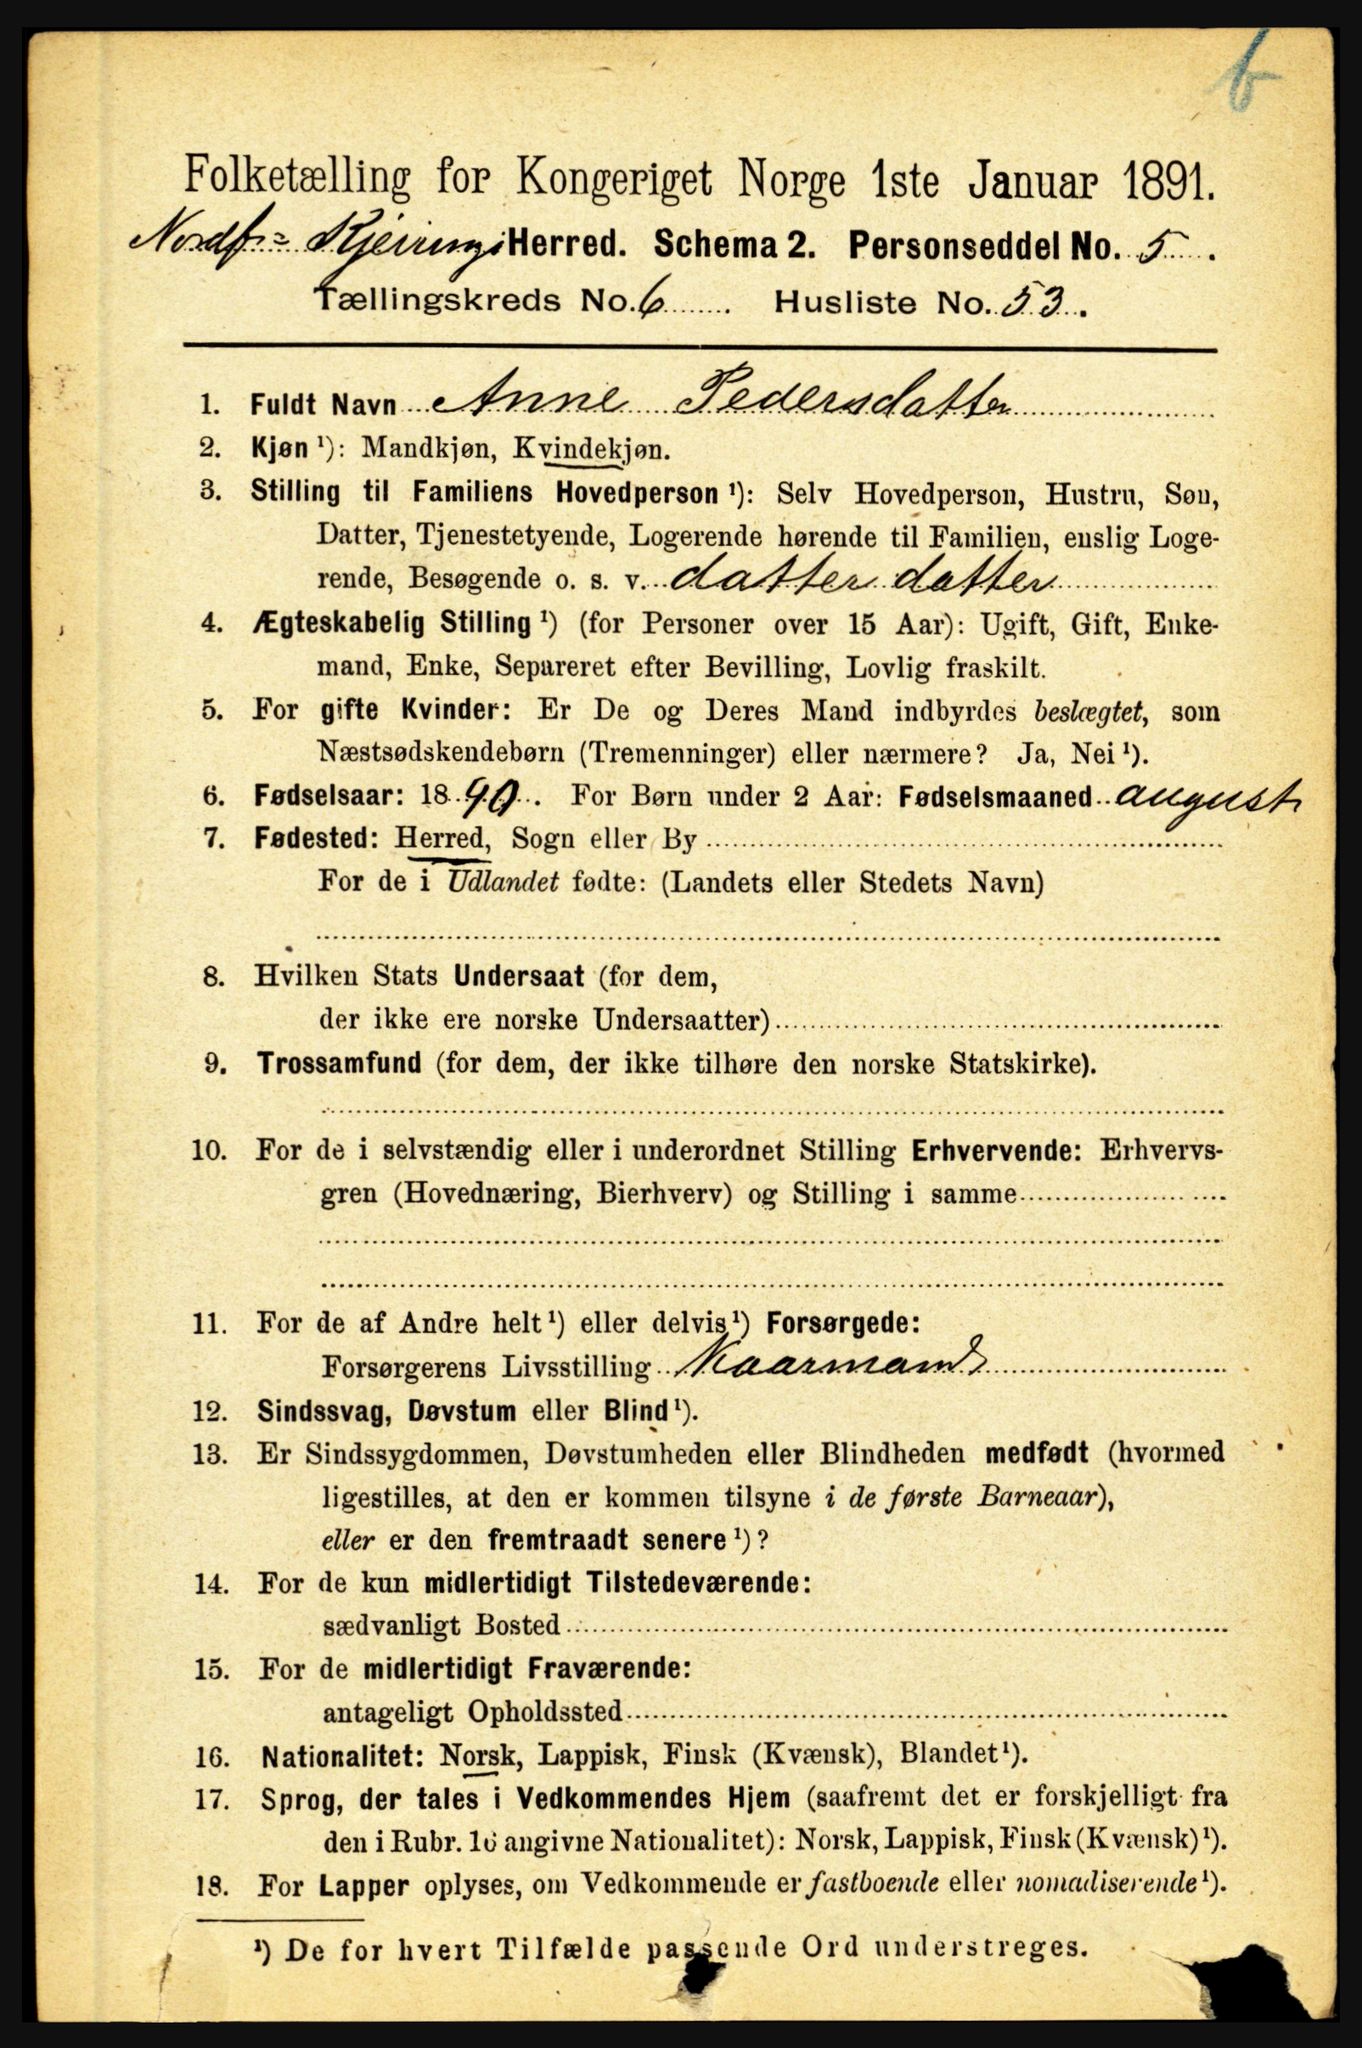 6
Folketælling for Kongeriget Norge 1ste Januar 1891.
Nordf:= Kjerringø Herred. Schema 2. Personseddel No. 5.
Tællingskreds No. 6. Husliste No. 53.
1. Fuldt Navn Anne Pedersdatter
2. Kjøn ¹): Mandkjøn, Kvindekjøn.
3. Stilling til Familiens Hovedperson ¹): Selv Hovedperson, Hustru, Søn,
Datter, Tjenestetyende, Logerende hørende til Familien, enslig Loge-
rende, Besøgende o. s. v. datter datter
4. Ægteskabelig Stilling ¹) (for Personer over 15 Aar): Ugift, Gift, Enke-
mand, Enke, Separeret efter Bevilling, Lovlig fraskilt.
5. For gifte Kvinder: Er De og Deres Mand indbyrdes beslægtet, som
Næstsødskendebørn (Tremenninger) eller nærmere? Ja, Nei ¹).
6. Fødselsaar: 1890. For Børn under 2 Aar: Fødselsmaaned august
7. Fødested: Herred, Sogn eller By
For de i Udlandet fødte: (Landets eller Stedets Navn)
8. Hvilken Stats Undersaat (for dem,
der ikke ere norske Undersaatter)
9. Trossamfund (for dem, der ikke tilhøre den norske Statskirke).
10. For de i selvstændig eller i underordnet Stilling Erhvervende: Erhvervs-
gren (Hovednæring, Bierhverv) og Stilling i samme
11. For de af Andre helt ¹) eller delvis ¹) Forsørgede:
Forsørgerens Livsstilling Kaarmand
12. Sindssvag, Døvstum eller Blind ¹).
13. Er Sindssygdommen, Døvstumheden eller Blindheden medfødt (hvormed
ligestilles, at den er kommen tilsyne i de første Barneaar),
eller er den fremtraadt senere ¹)?
14. For de kun midlertidigt Tilstedeværende:
sædvanligt Bosted
15. For de midlertidigt Fraværende:
antageligt Opholdssted
16. Nationalitet: Norsk, Lappisk, Finsk (Kvænsk), Blandet ¹).
17. Sprog, der tales i Vedkommendes Hjem (saafremt det er forskjelligt fra
den i Rubr. 16 angivne Nationalitet): Norsk, Lappisk, Finsk (Kvænsk) ¹).
18. For Lapper oplyses, om Vedkommende er fastboende eller nomadiserende ¹).
¹) De for hvert Tilfælde passende Ord understreges.